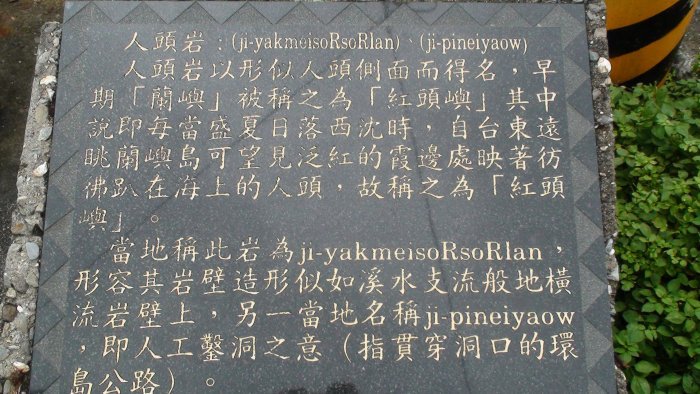 人頭岩：(ji-yakmeisoRsoRlan)、(ji-pineiyaow)
人頭岩以形似人頭側面而得名，早
期「蘭嶼」被稱之為「紅頭嶼」其中
說即每當盛夏日落西沈時，自台東遠
眺蘭嶼島可望見泛紅的霞邊處映著彷
彿趴在海上的人頭，故稱之為「紅頭
嶼」。
當地稱此岩為ji-yakmeisoRsoRlan，
形容其岩壁造形似如溪水支流般地橫
流岩壁上，另一當地名稱ji-pineiyaow
，即人工鑿洞之意（指貫穿洞口的環
島公路）。